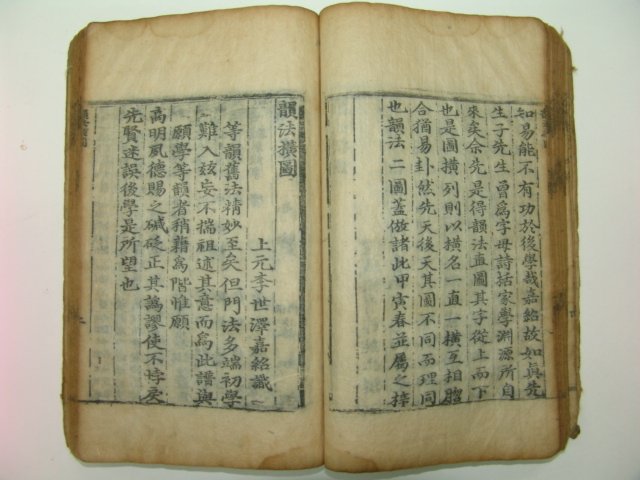 知易能不有功於後學哉嘉紹故如真先
生子先生曾爲字母詩括家學淵源所自
來矣余先是得韻法直圖其字從上而下
也是圖橫列則以橫名一直一橫互相脗
合猶易卦然先天後天其圖不同而理同
也韻法二圖蓋倣諸此甲寅春並屬之梓
韻法橫圖
上元李世澤嘉紹識
等韻舊法精妙至矣但門法多端初學
難入玆妄不揣祖述其意而爲此譜與
願學等韻者稍藉爲階惟願
高明風德賜之鍼砭正其譌謬使不悖戾
先賢迷誤後學是所望也